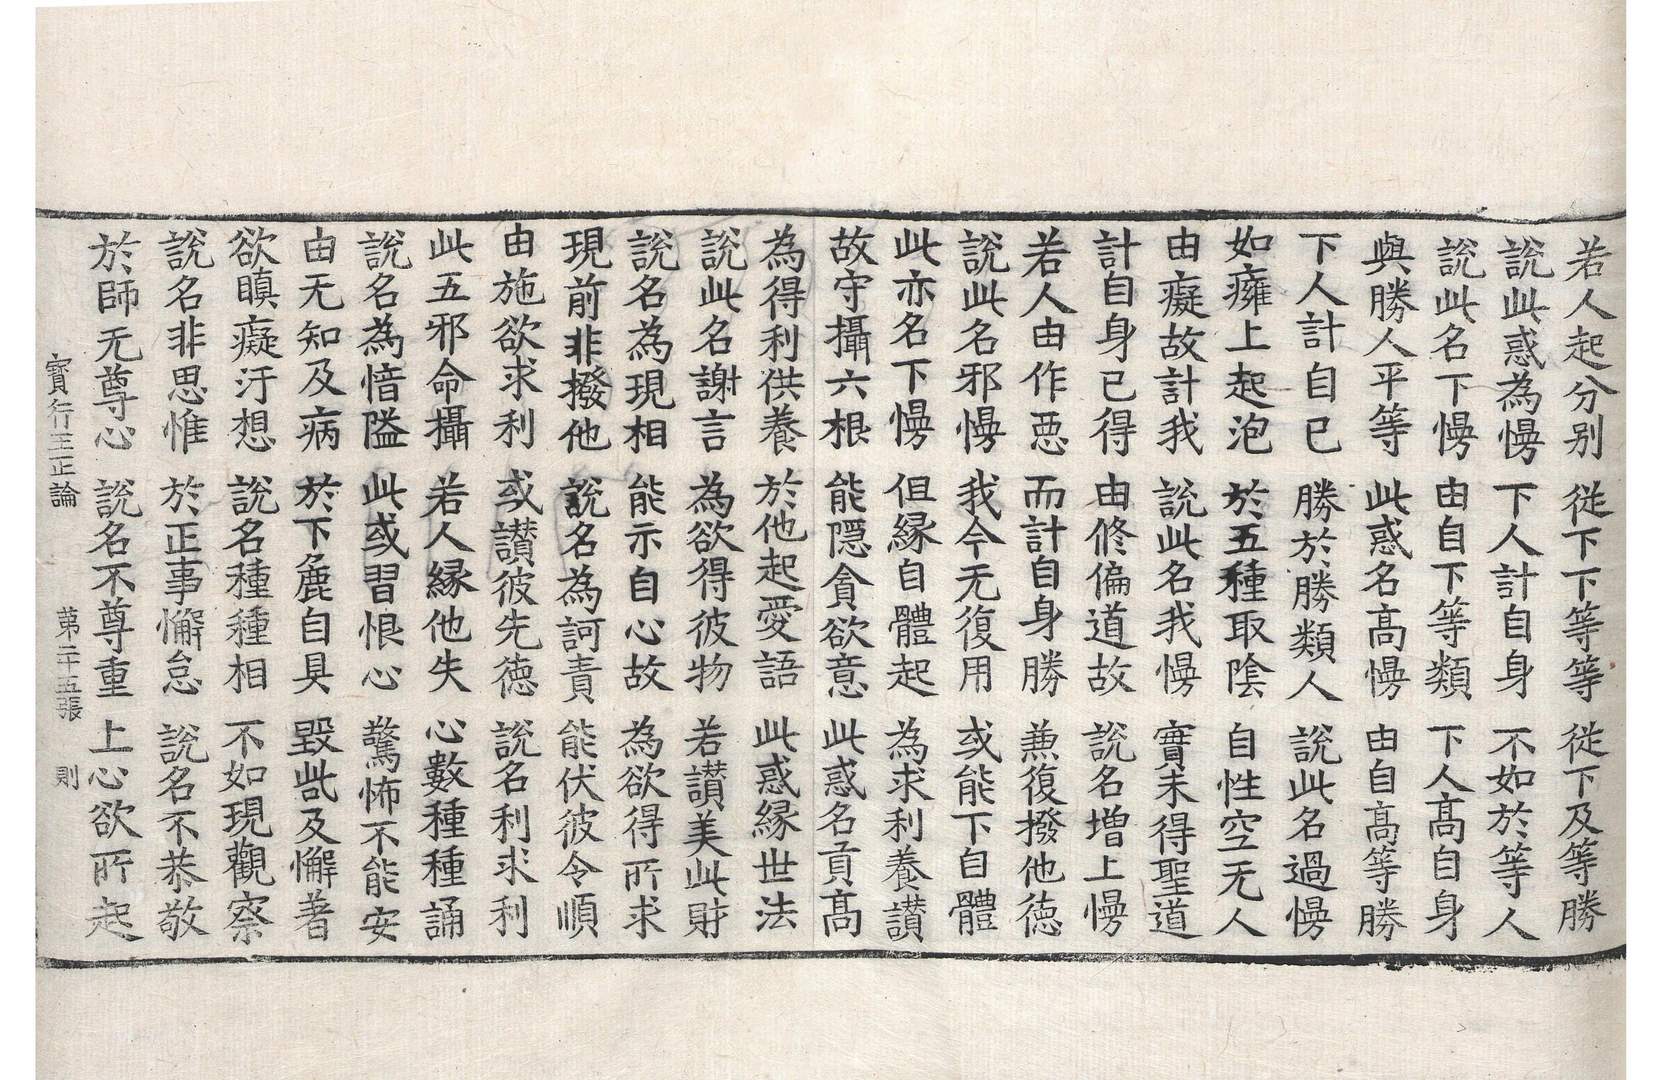 若人起分别 從下下等等 從下及等勝
說此惑為慢 下人計自身 不如於等人
說此名下慢 由自下等類 下人髙自身
與勝人平等 此惑名髙慢 由自髙等勝
下人計自已 勝於勝類人 說此名過慢
如癰上起泡 於五種取陰 自性空无人
由癡故計我 說此名我慢 實未得聖道
計自身已得 由修偏道故 說名增上慢
若人由作惡 而計自身勝 兼復撥他德
說此名邪慢 我今无復用 或能下自體
此亦名下慢 但緣自體起 為求利養讃
故守攝六根 能隱貪欲意 此惑名貢髙
為得利供養 於他起愛語 此惑緣世法
說此名謝言 為欲得彼物 若讃美此財
說名為現相 能示自心故 為欲得所求
現前非撥他 說名為訶責 能伏彼令順
由施欲求利 或讃彼先德 說名利求利
此五邪命攝 若人緣他失 心數種種誦
說名為愔隘 此或習恨心 驚怖不能安
由无知及病 於下麁自具 毀呰及懈著
欲瞋癡汙想 說名種種相 不如現觀察
說名非思惟 於正事懈怠 說名不恭敬
於師无尊心 說名不尊重 上心欲所起
寶行王正論 第二十五張 則